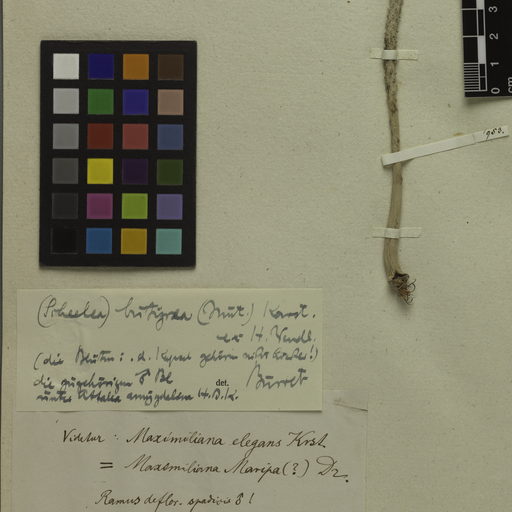 953.
0 1 2 3
cm
(Scheelea) butyracea (Mut.) Karst.
ex H. Wendl.
(die Blüten : d. Kapsel gehören nicht hierher!)
die zugehörigen ♂ Bl
unter Attalea amygdalina H.B.K.
det. Burret
Videtur : Maximiliana elegans Krst.
= Maximiliana Maripa (?) Dr.
Ramus deflor. spadicis ♂ !